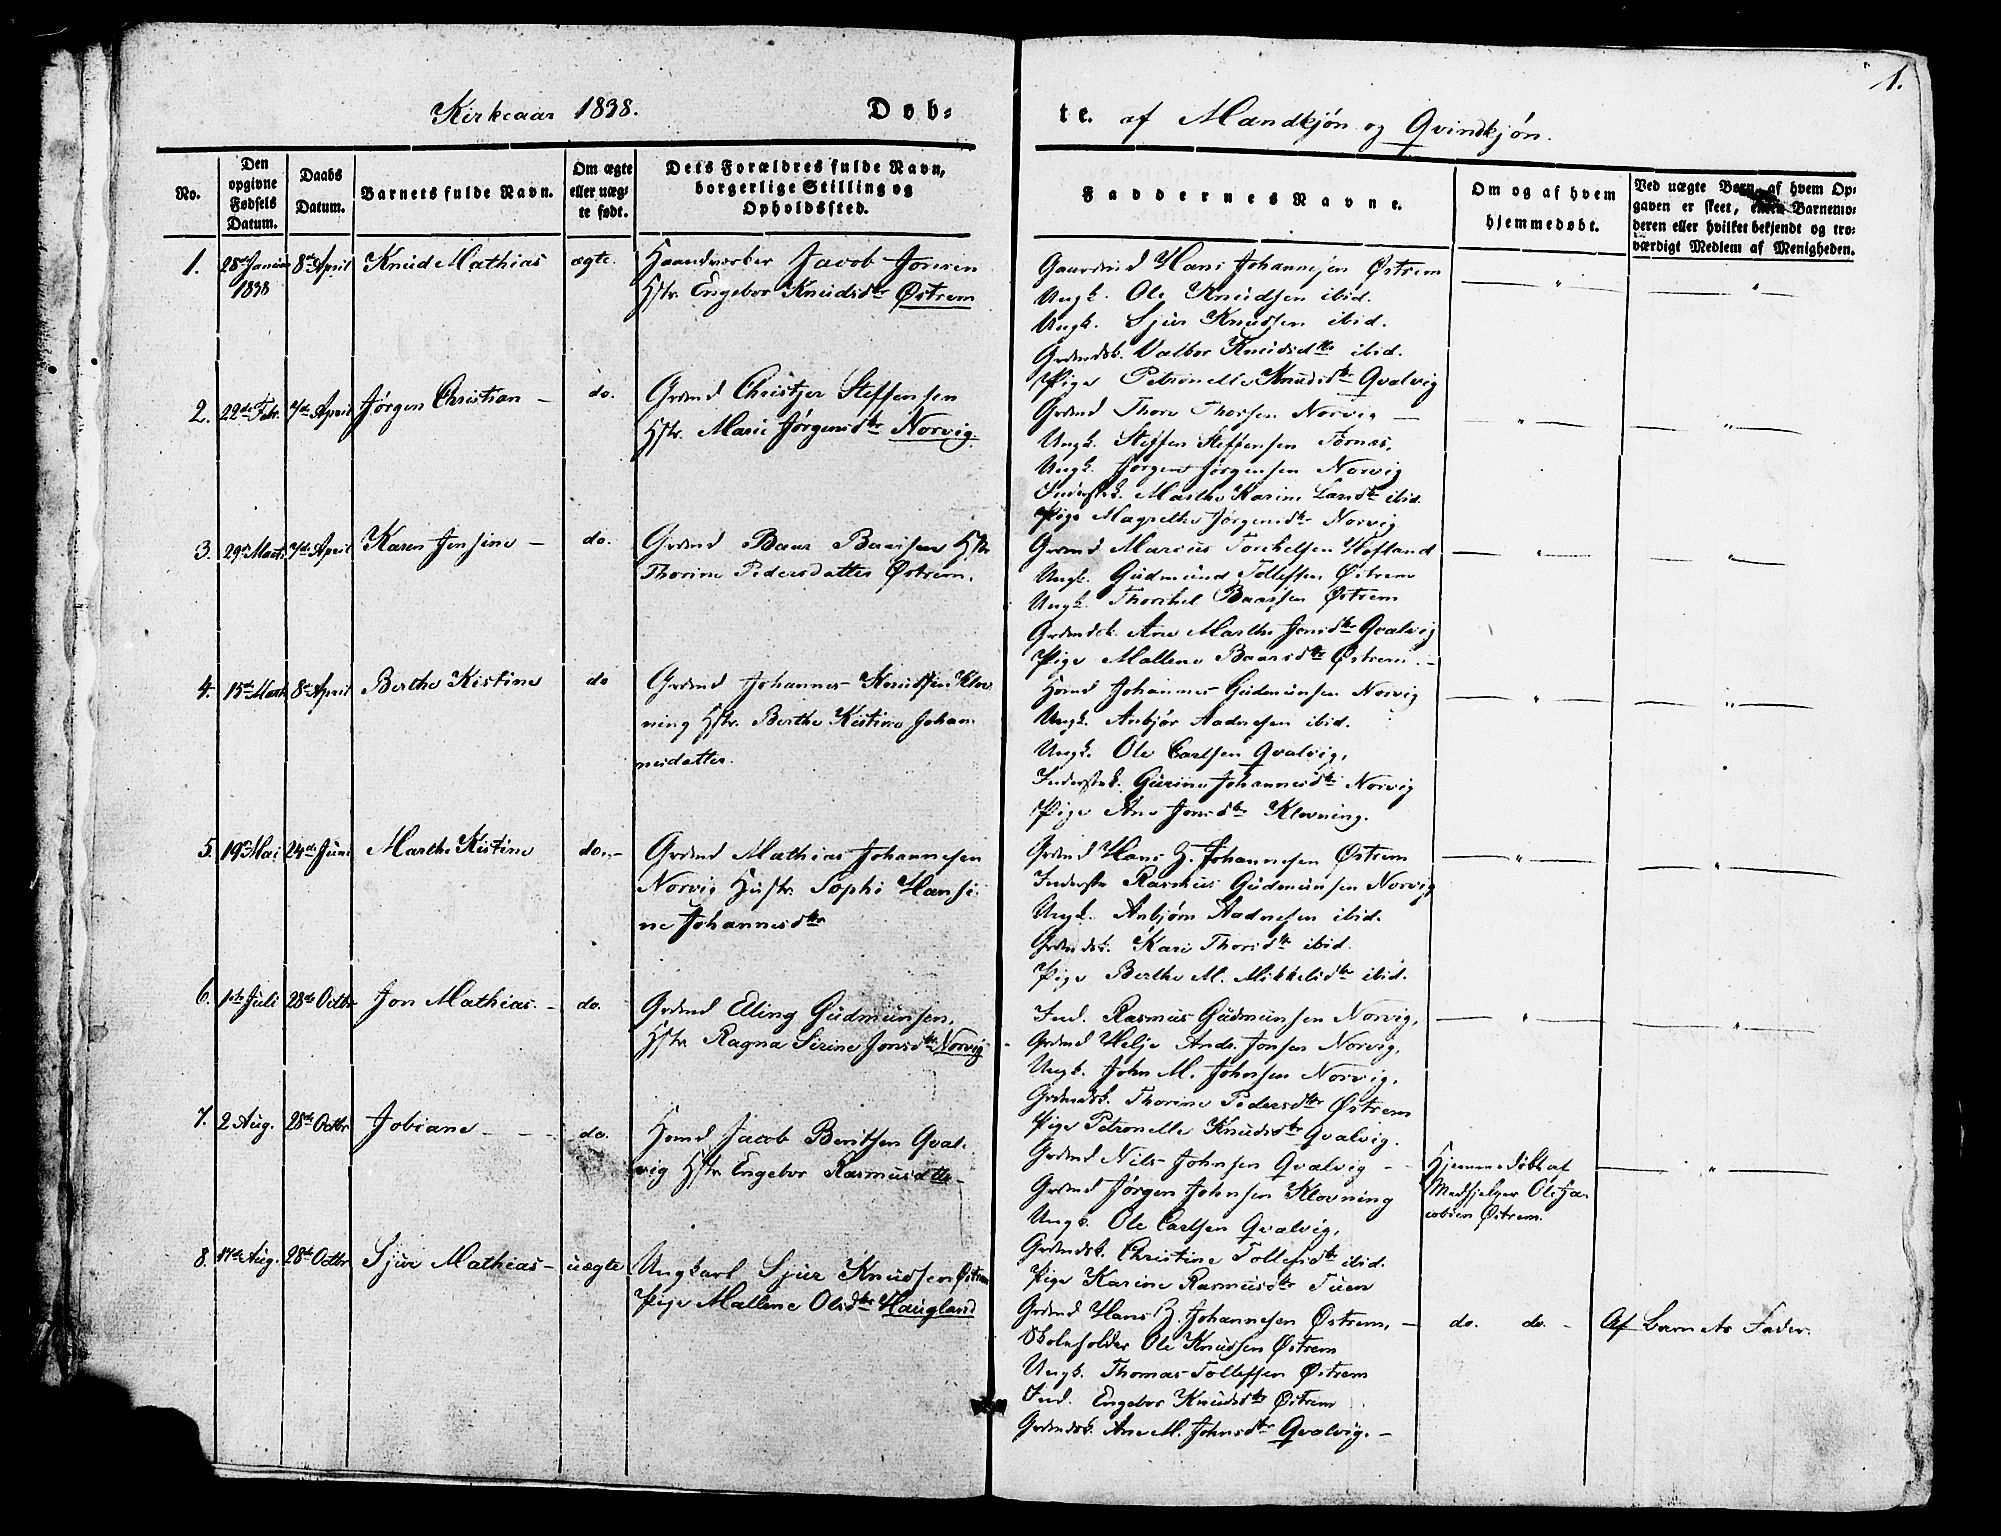 1.
Kirkeaar 1838. Døb-
te. af Mandkjøn og Qvindkjøn.
No.
Den opgivne Fødsels Datum.
Daabs Datum.
Barnets fulde Navn.
Om ægte eller uæg- te født.
Dets Forældres fulde Navn, borgerlige Stilling og Opholdssted.
Faddernes Navne.
Om og af hvem hjemmedøbt.
Ved uægte Børn, af hvem Op- gaven er skeet, enten Barnemo- deren eller hvilket bekjendt og tro- værdigt Medlem af Menigheden.
1. 28de Januar 1838 8de April Knud Mathias ægte.
Haandværker Jacob Jonsen
Hstr. Engebor Knudsdtr Østrem
Gaardmd Hans Johannesen Østrem
Ungk. Ole Knudsen ibid.
Ungk. Sjur Knudsen ibid.
Grdmdsk. Valbor Knudsdtr ibid.
Pige Petronelle Knudsdtr Qvalvig
2. 22de Febr. 7de April Jørgen Christian - do.
Grdmd Christjer Steffensen
Hstr. Marie Jørgensdtr Norvig.
Grdmd Thore Thorsen Norvig -
Ungk. Steffen Steffensen Fornæs,
Ungk. Jørgen Jørgensen Norvig
Inderstk. Marthe Karine Larsdtr ibid.
Pige Magrethe Jørgensdtr Norvig
3. 29de Marts 7de April Karen Jensine - do.
Grdmd Baar Baarsen Hstr
Thorine Pedersdatter Østrem.
Grdmd Marcus Torchelsen Hofland
Ungk. Gudmund Tollefsen Østrem
Ungk. Thorchel Baarsen Østrem
Grdmdsk. Ane Marthe Jonsdtr Qvalvig
Pige Mallene Baarsdtr Østrem. -
4. 15de Marts 8de April Berthe Kistine do
Grdmd Johannes Knudsen Klov-
ning Hstr. Berthe Kistine Johan-
nesdatter.
Husmd Johannes Gudmunsen Norvig
Ungk. Anbjør Aadnesen ibid.
Ungk. Ole Carlsen Qvalvig,
Inderstk. Gurine Johannesdtr Norvig
Pige Ane Jonsdtr Klovning.
5. 19de Mai 24de Juni Marthe Kistine do. -
Grdmd Mathias Johannesen
Norvig Hustr. Sophi Hansi-
ne Johannesdtr
Grdmd Hans Z. Johannesen Østrem
Inderste Rasmus Gudmunsen Norvig
Ungk. Anbjørn Aadnesen ibid.
Grdmdsk. Kari Thorsdtr ibid.
Pige Berthe M. Mikkelsdtr ibid.
6. 1ste Juli 28de Octbr Jon Mathias. - do.
Grdmd Elling Gudmunsen,
Hstr Ragna Serine Jonsdtr Norvig
Ind. Rasmus Gudmunsen Norvig,
Grdmd Helje Andr. Jonsen Norvig,
Ungk. John M. Johnsen Norvig,
Grdmdsk. Thorine Pedersdtr Østrem
Pige Petronelle Knudsdtr Qvalvig.
7. 2 Aug. 28de Octbr Jobiane - - do.
Husmd Jacob Beritsen Qval-
vig Hstr Engebor Rasmusdtr -
Grdmd Nils Johnsen Qvalvig -
Grdmd Jørgen Johnsen Klovning
Ungk. Ole Carlsen Qvalvig,
Grdmdsk. Christine Tollefsdtr ibid.
Pige Karine Rasmusdtr Tuen
Hjemmedøbt af
Medhjelper Ole Ja-
cobsen Østrem.
8. 17de Aug. 28de Octbr Sjur Mathias - uægte
Ungkarl Sjur Knudsen Østrem
Pige Mallene Olsdtr Haugland
Grdmd Hans Z. Johannesen Østrem, -
Skoleholder Ole Knudsen Østrem
Ungk. Thomas Tollefsen Østrem
Ind. Engebor Knudsdtr Østrem
Grdmdsk. Ane M. Johnsdtr Qvalvig. -
do. do. -
Af Barnets Fader.